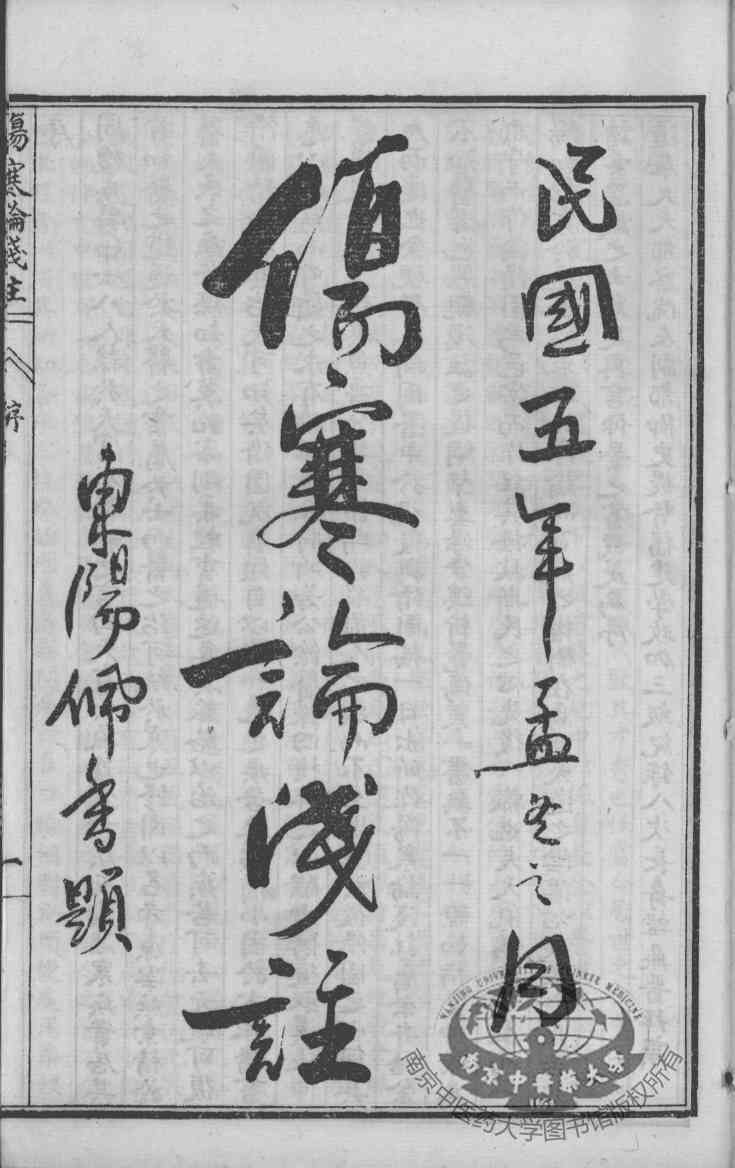 民國五年孟冬之月
傷寒論淺註
東陽佩香題
傷寒論淺註
序
一
NANJING UNIVERSITY OF CHINESE MEDICINE
南京中醫藥大學
南京中医药大学图书馆版权所有